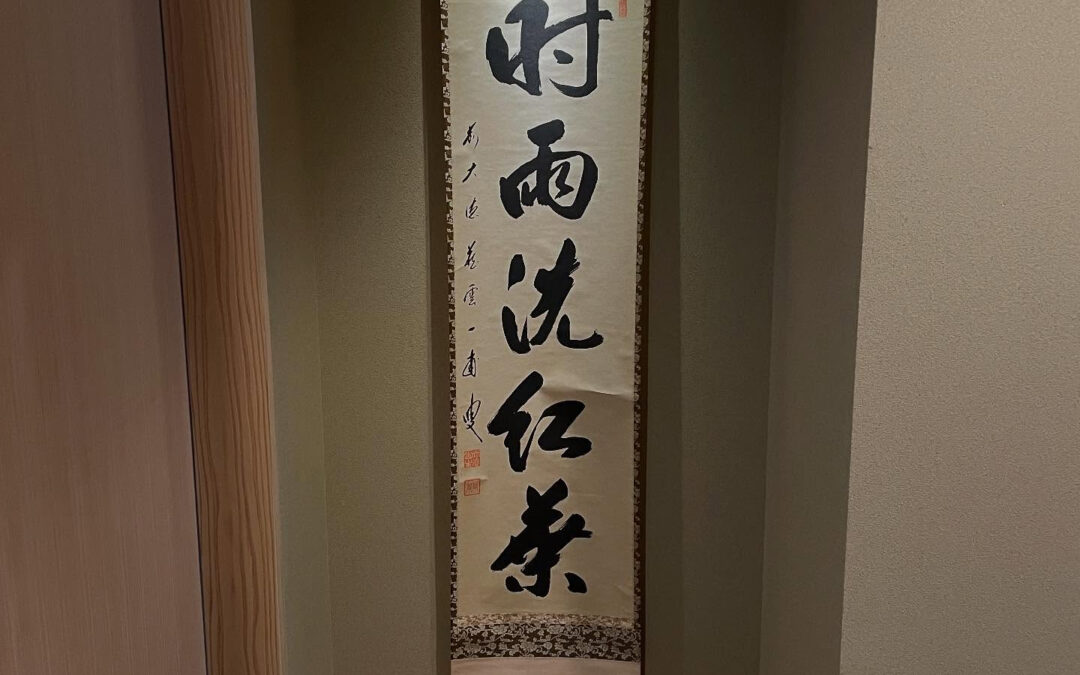 时雨洗紅葉
前大徳藞雲一甫叟